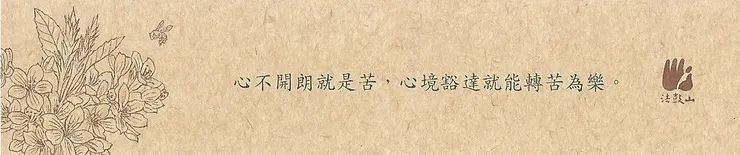 心不開朗就是苦，心境豁達就能轉苦為樂。
法鼓山